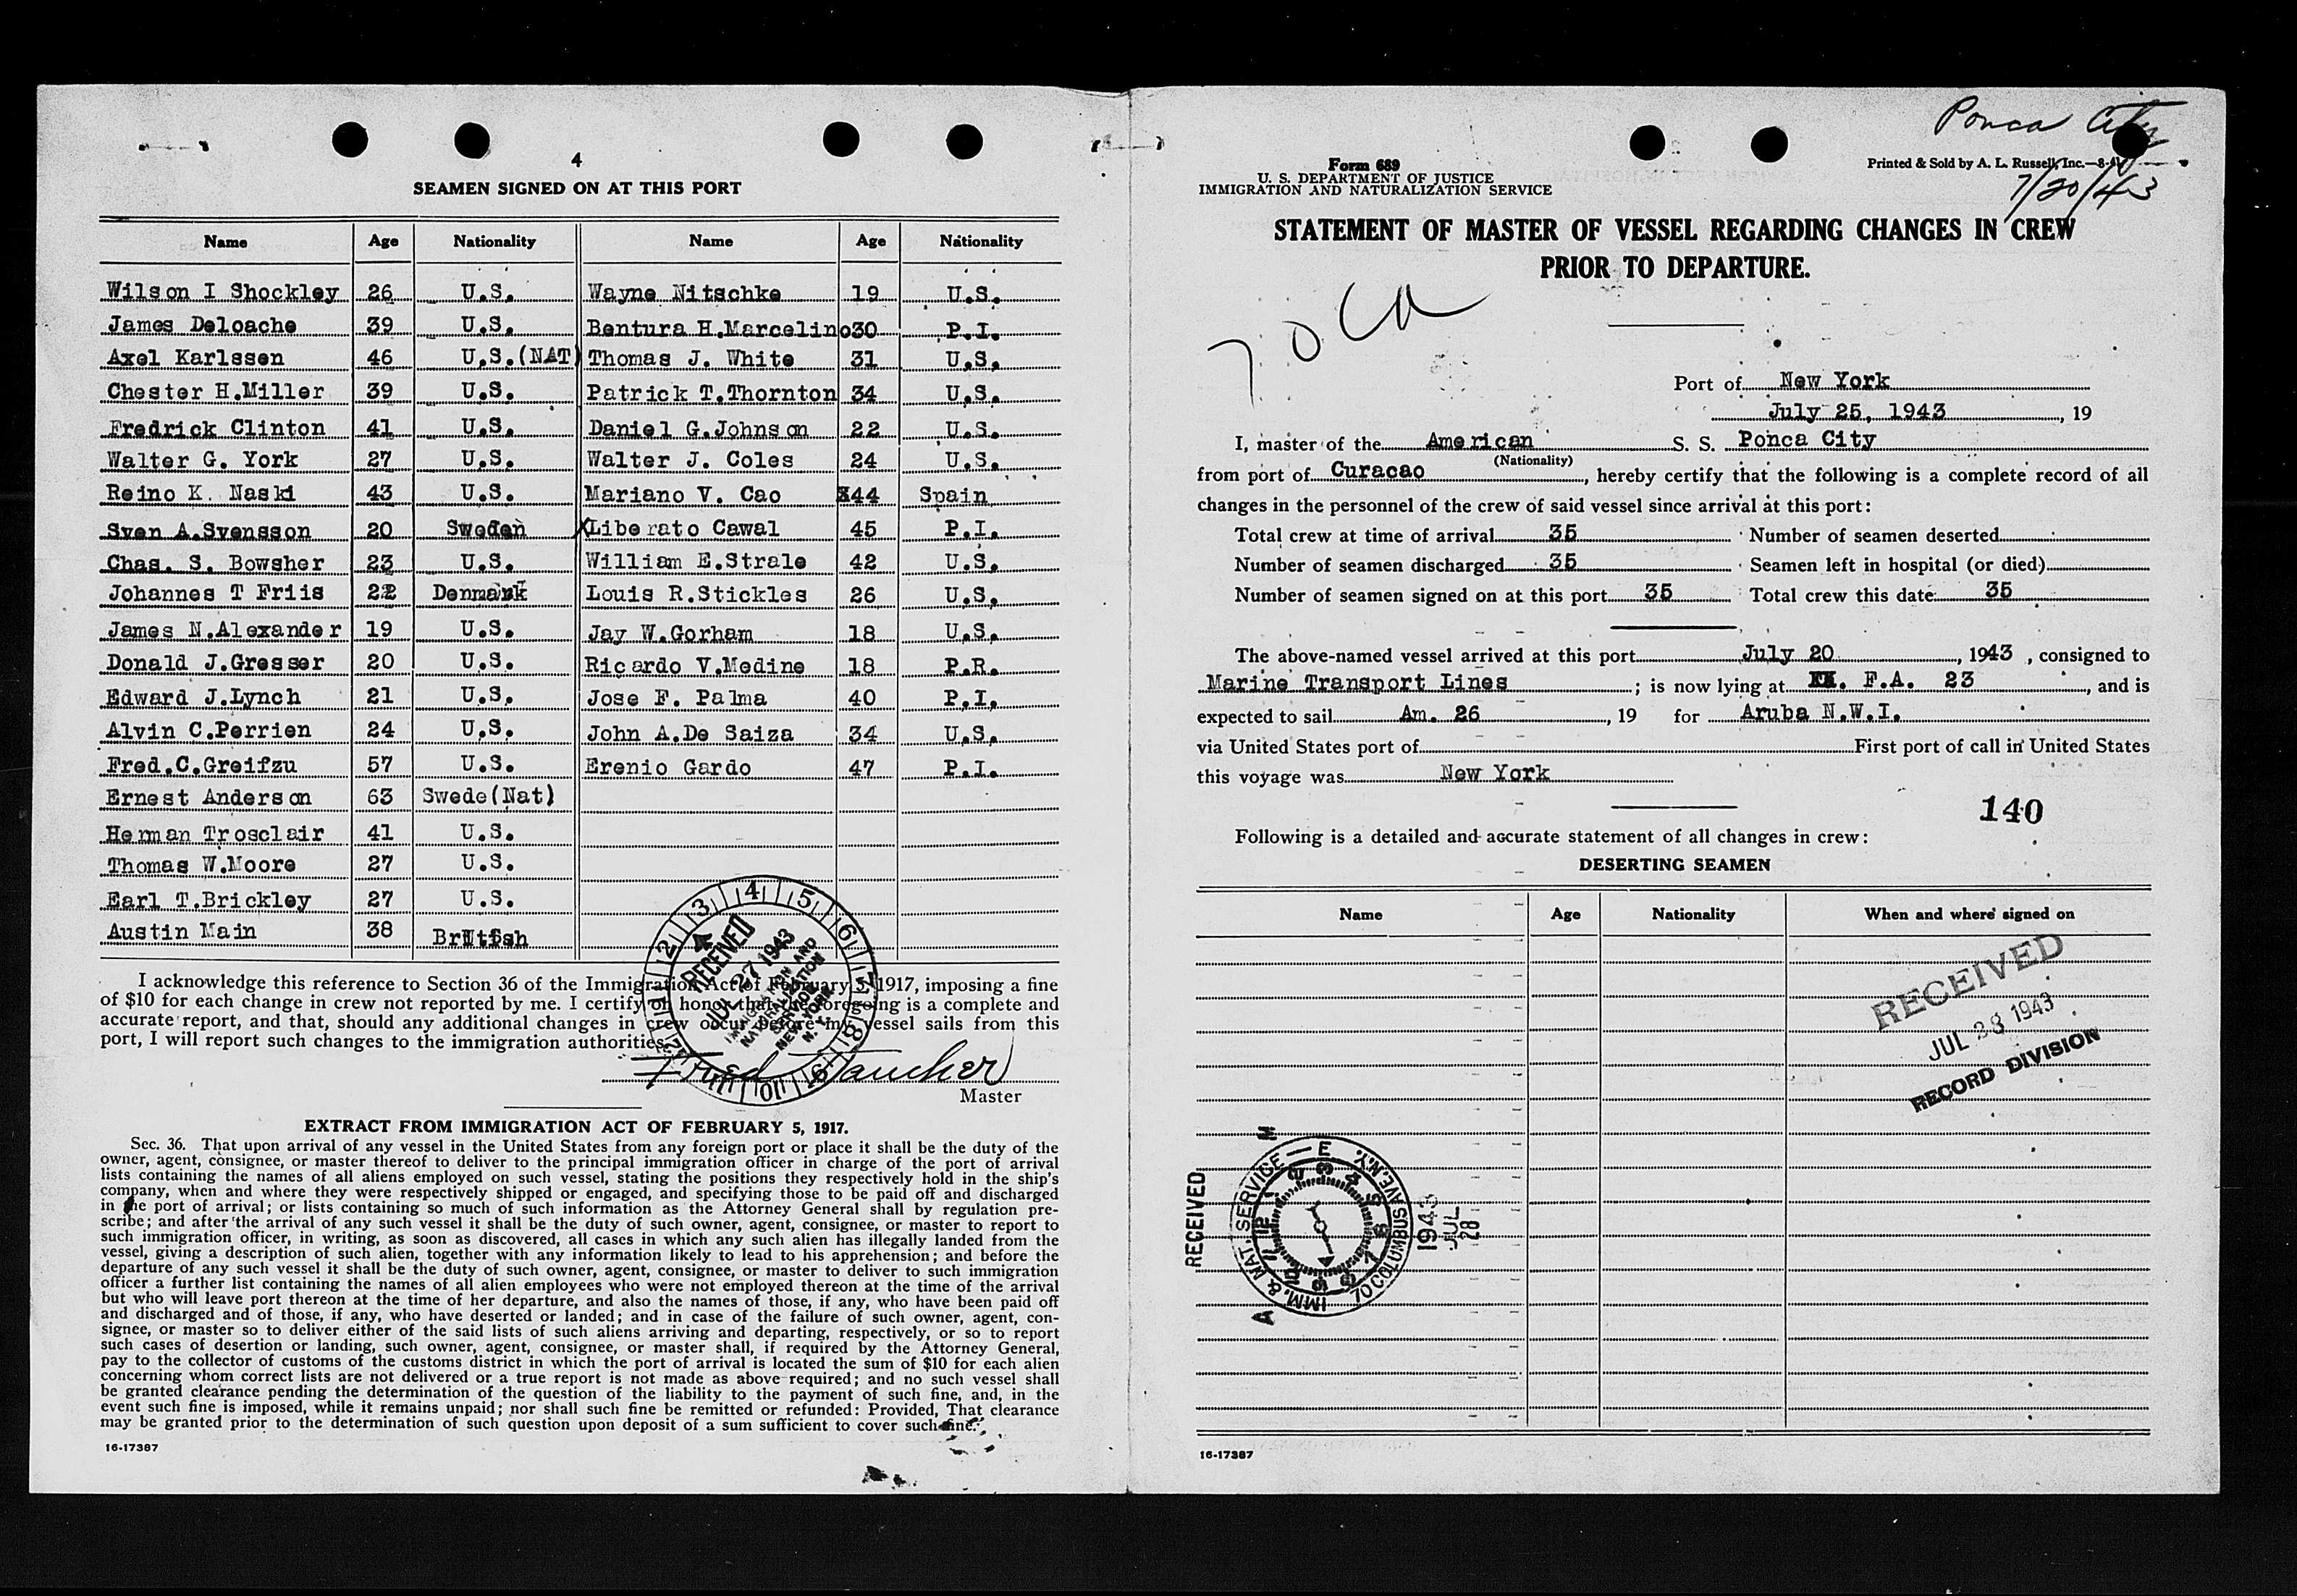 4
SEAMEN SIGNED ON AT THIS PORT
Name Age Nationality Name Age Nationality
Wilson I Shockley 26 U.S. Wayne Nitschke 19 U.S.
James Deloache 39 U.S. Bentura H.Marcelino 30 P.I.
Axel Karlssen 46 U.S.(NAT) Thomas J. White 31 U.S.
Chester H.Miller 39 U.S. Patrick T.Thornton 34 U.S.
Fredrick Clinton 41 U.S. Daniel G.Johnson 22 U.S.
Walter G. York 27 U.S. Walter J. Coles 24 U.S.
Reino K. Naski 43 U.S. Mariano V. Cao 44 Spain
Sven A.Svensson 20 Sweden Liberato Cawal 45 P.I.
Chas. S. Bowsher 23 U.S. William E.Strale 42 U.S.
Johannes T Friis 22 Denmark Louis R.Stickles 26 U.S.
James N.Alexander 19 U.S. Jay W.Gorham 18 U.S.
Donald J.Gresser 20 U.S. Ricardo V.Medine 18 P.R.
Edward J.Lynch 21 U.S. Jose F. Palma 40 P.I.
Alvin C.Perrien 24 U.S. John A.De Saiza 34 U.S.
Fred.C.Greifzu 57 U.S. Erenio Gardo 47 P.I.
Ernest Anderson 63 Swede(Nat)
Herman Trosclair 41 U.S.
Thomas W.Moore 27 U.S.
Earl T.Brickley 27 U.S.
Austin Main 38 British
I acknowledge this reference to Section 36 of the Immigration Act of February 5, 1917, imposing a fine
of $10 for each change in crew not reported by me. I certify on honor that the foregoing is a complete and
accurate report, and that, should any additional changes in crew occur before my vessel sails from this
port, I will report such changes to the immigration authorities.
RECEIVED
JUL 27 1943
IMMIGRATION AND
NATURALIZATION
SERVICE
NEW YORK
N. Y.
Fred Faucher
Master
EXTRACT FROM IMMIGRATION ACT OF FEBRUARY 5, 1917.
Sec. 36. That upon arrival of any vessel in the United States from any foreign port or place it shall be the duty of the
owner, agent, consignee, or master thereof to deliver to the principal immigration officer in charge of the port of arrival
lists containing the names of all aliens employed on such vessel, stating the positions they respectively hold in the ship's
company, when and where they were respectively shipped or engaged, and specifying those to be paid off and discharged
in the port of arrival; or lists containing so much of such information as the Attorney General shall by regulation pre-
scribe; and after the arrival of any such vessel it shall be the duty of such owner, agent, consignee, or master to report to
such immigration officer, in writing, as soon as discovered, all cases in which any such alien has illegally landed from the
vessel, giving a description of such alien, together with any information likely to lead to his apprehension; and before the
departure of any such vessel it shall be the duty of such owner, agent, consignee, or master to deliver to such immigration
officer a further list containing the names of all alien employees who were not employed thereon at the time of the arrival
but who will leave port thereon at the time of her departure, and also the names of those, if any, who have been paid off
and discharged and of those, if any, who have deserted or landed; and in case of the failure of such owner, agent, con-
signee, or master so to deliver either of the said lists of such aliens arriving and departing, respectively, or so to report
such cases of desertion or landing, such owner, agent, consignee, or master shall, if required by the Attorney General,
pay to the collector of customs of the customs district in which the port of arrival is located the sum of $10 for each alien
concerning whom correct lists are not delivered or a true report is not made as above required; and no such vessel shall
be granted clearance pending the determination of the question of the liability to the payment of such fine, and, in the
event such fine is imposed, while it remains unpaid; nor shall such fine be remitted or refunded: Provided, That clearance
may be granted prior to the determination of such question upon deposit of a sum sufficient to cover such fine.
16-17387
Ponca City
7/20/43
Form 689
U. S. DEPARTMENT OF JUSTICE
IMMIGRATION AND NATURALIZATION SERVICE
Printed & Sold by A. L. Russell, Inc.
STATEMENT OF MASTER OF VESSEL REGARDING CHANGES IN CREW
PRIOR TO DEPARTURE.
Port of New York
July 25, 1943, 19
I, master of the American S. S. Ponca City
(Nationality)
from port of Curacao, hereby certify that the following is a complete record of all
changes in the personnel of the crew of said vessel since arrival at this port:
Total crew at time of arrival 35 Number of seamen deserted
Number of seamen discharged 35 Seamen left in hospital (or died)
Number of seamen signed on at this port 35 Total crew this date 35
The above-named vessel arrived at this port July 20, 1943, consigned to
Marine Transport Lines; is now lying at F.A. 23, and is
expected to sail Am. 26, 19 for Aruba N.W.I.
via United States port of First port of call in United States
this voyage was New York
140
Following is a detailed and accurate statement of all changes in crew:
DESERTING SEAMEN
Name Age Nationality When and where signed on
RECEIVED
JUL 28 1943
RECORD DIVISION
RECEIVED
IMM. & NAT. SERVICE — E
70 COLUMBUS AVE. N.Y.
1943
JUL
28
A M
16-17387